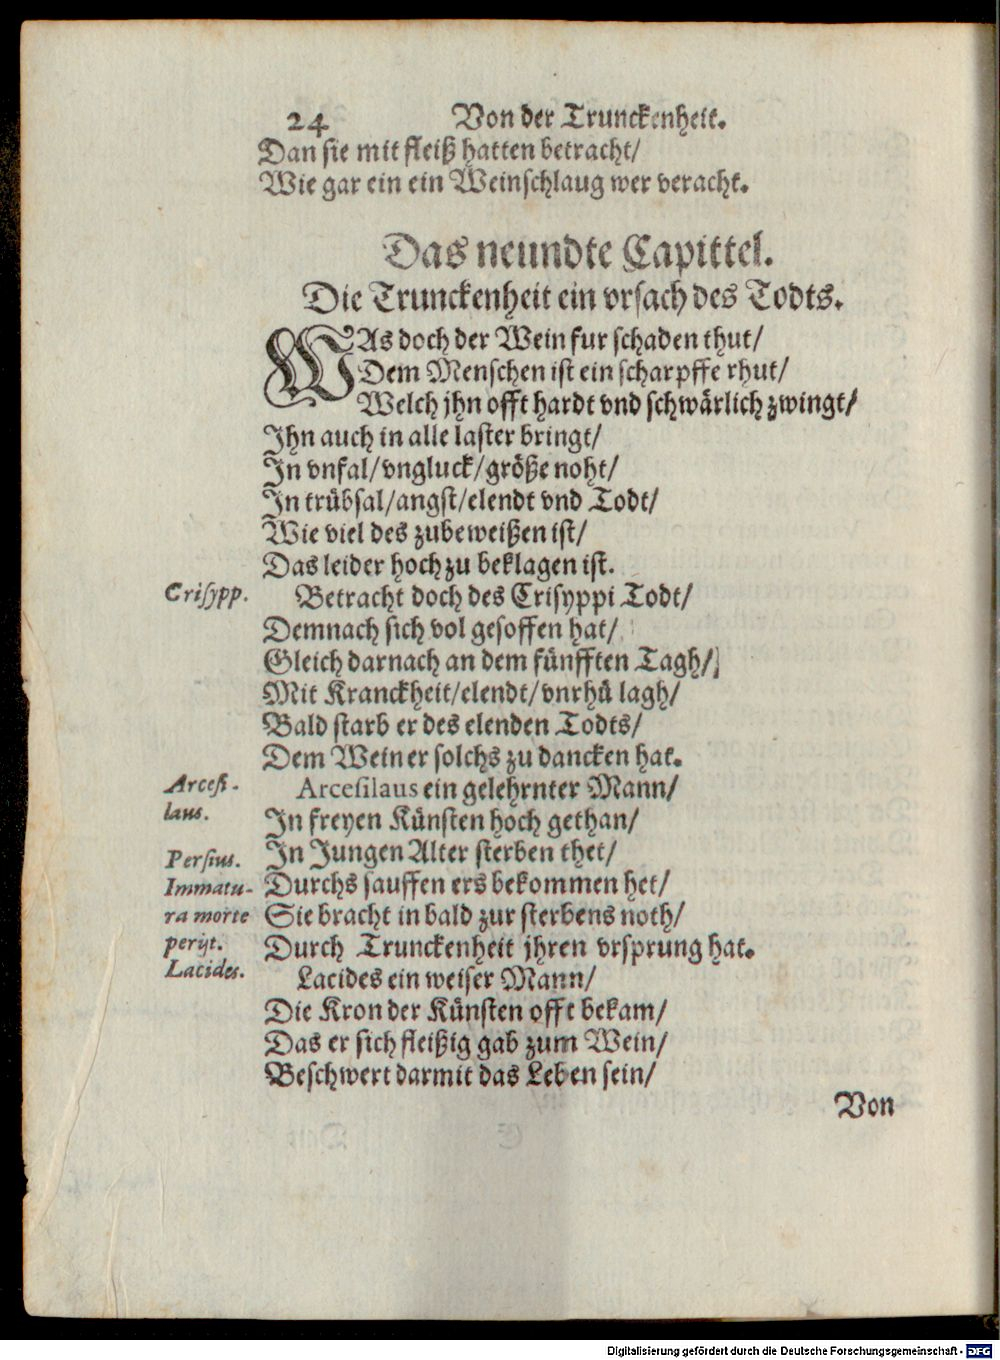 24 Von der Trunckenheit.
Dan sie mit fleiß hatten betracht/
Wie gar ein ein Weinschlaug wer veracht.
Das neundte Capittel.
Die Trunckenheit ein vrsach des Todts.
WAs doch der Wein fur schaden thut/
Dem Menschen ist ein scharpffe rhut/
Welch jhn offt hardt vnd schwärlich zwingt/
Ihn auch in alle laster bringt/
In vnfal/vngluck/größe noht/
In trübsal/angst/elendt vnd Todt/
Wie viel des zubeweißen ist/
Das leider hoch zu beklagen ist.
Crisypp.
Betracht doch des Crisyppi Todt/
Demnach sich vol gesoffen hat/
Gleich darnach an dem fünfften Tagh/
Mit Kranckheit/elendt/vnrhü lagh/
Bald starb er des elenden Todts/
Dem Wein er solchs zu dancken hat.
Arcesi-
laus.
Arcesilaus ein gelehrnter Mann/
In freyen Künsten hoch gethan/
Persius.
Immatu-
ra morte
perijt.
In Jungen Alter sterben thet/
Durchs sauffen ers bekommen het/
Sie bracht in bald zur sterbens noth/
Durch Trunckenheit jhren vrsprung hat.
Lacides.
Lacides ein weiser Mann/
Die Kron der Künsten offt bekam/
Das er sich fleißig gab zum Wein/
Beschwert darmit das Leben sein/
Von
Digitalisierung gefördert durch die Deutsche Forschungsgemeinschaft - DFG